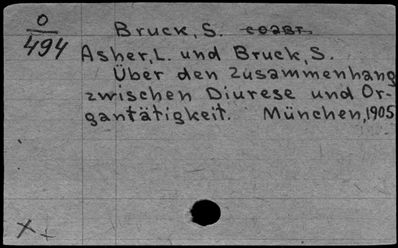 O
494
Bruck, S. соавт.
Asher, L. und Bruck, S.
Über den Zusammenhang
zwischen Diurese und Or-
gantätigkeit. München, 1905